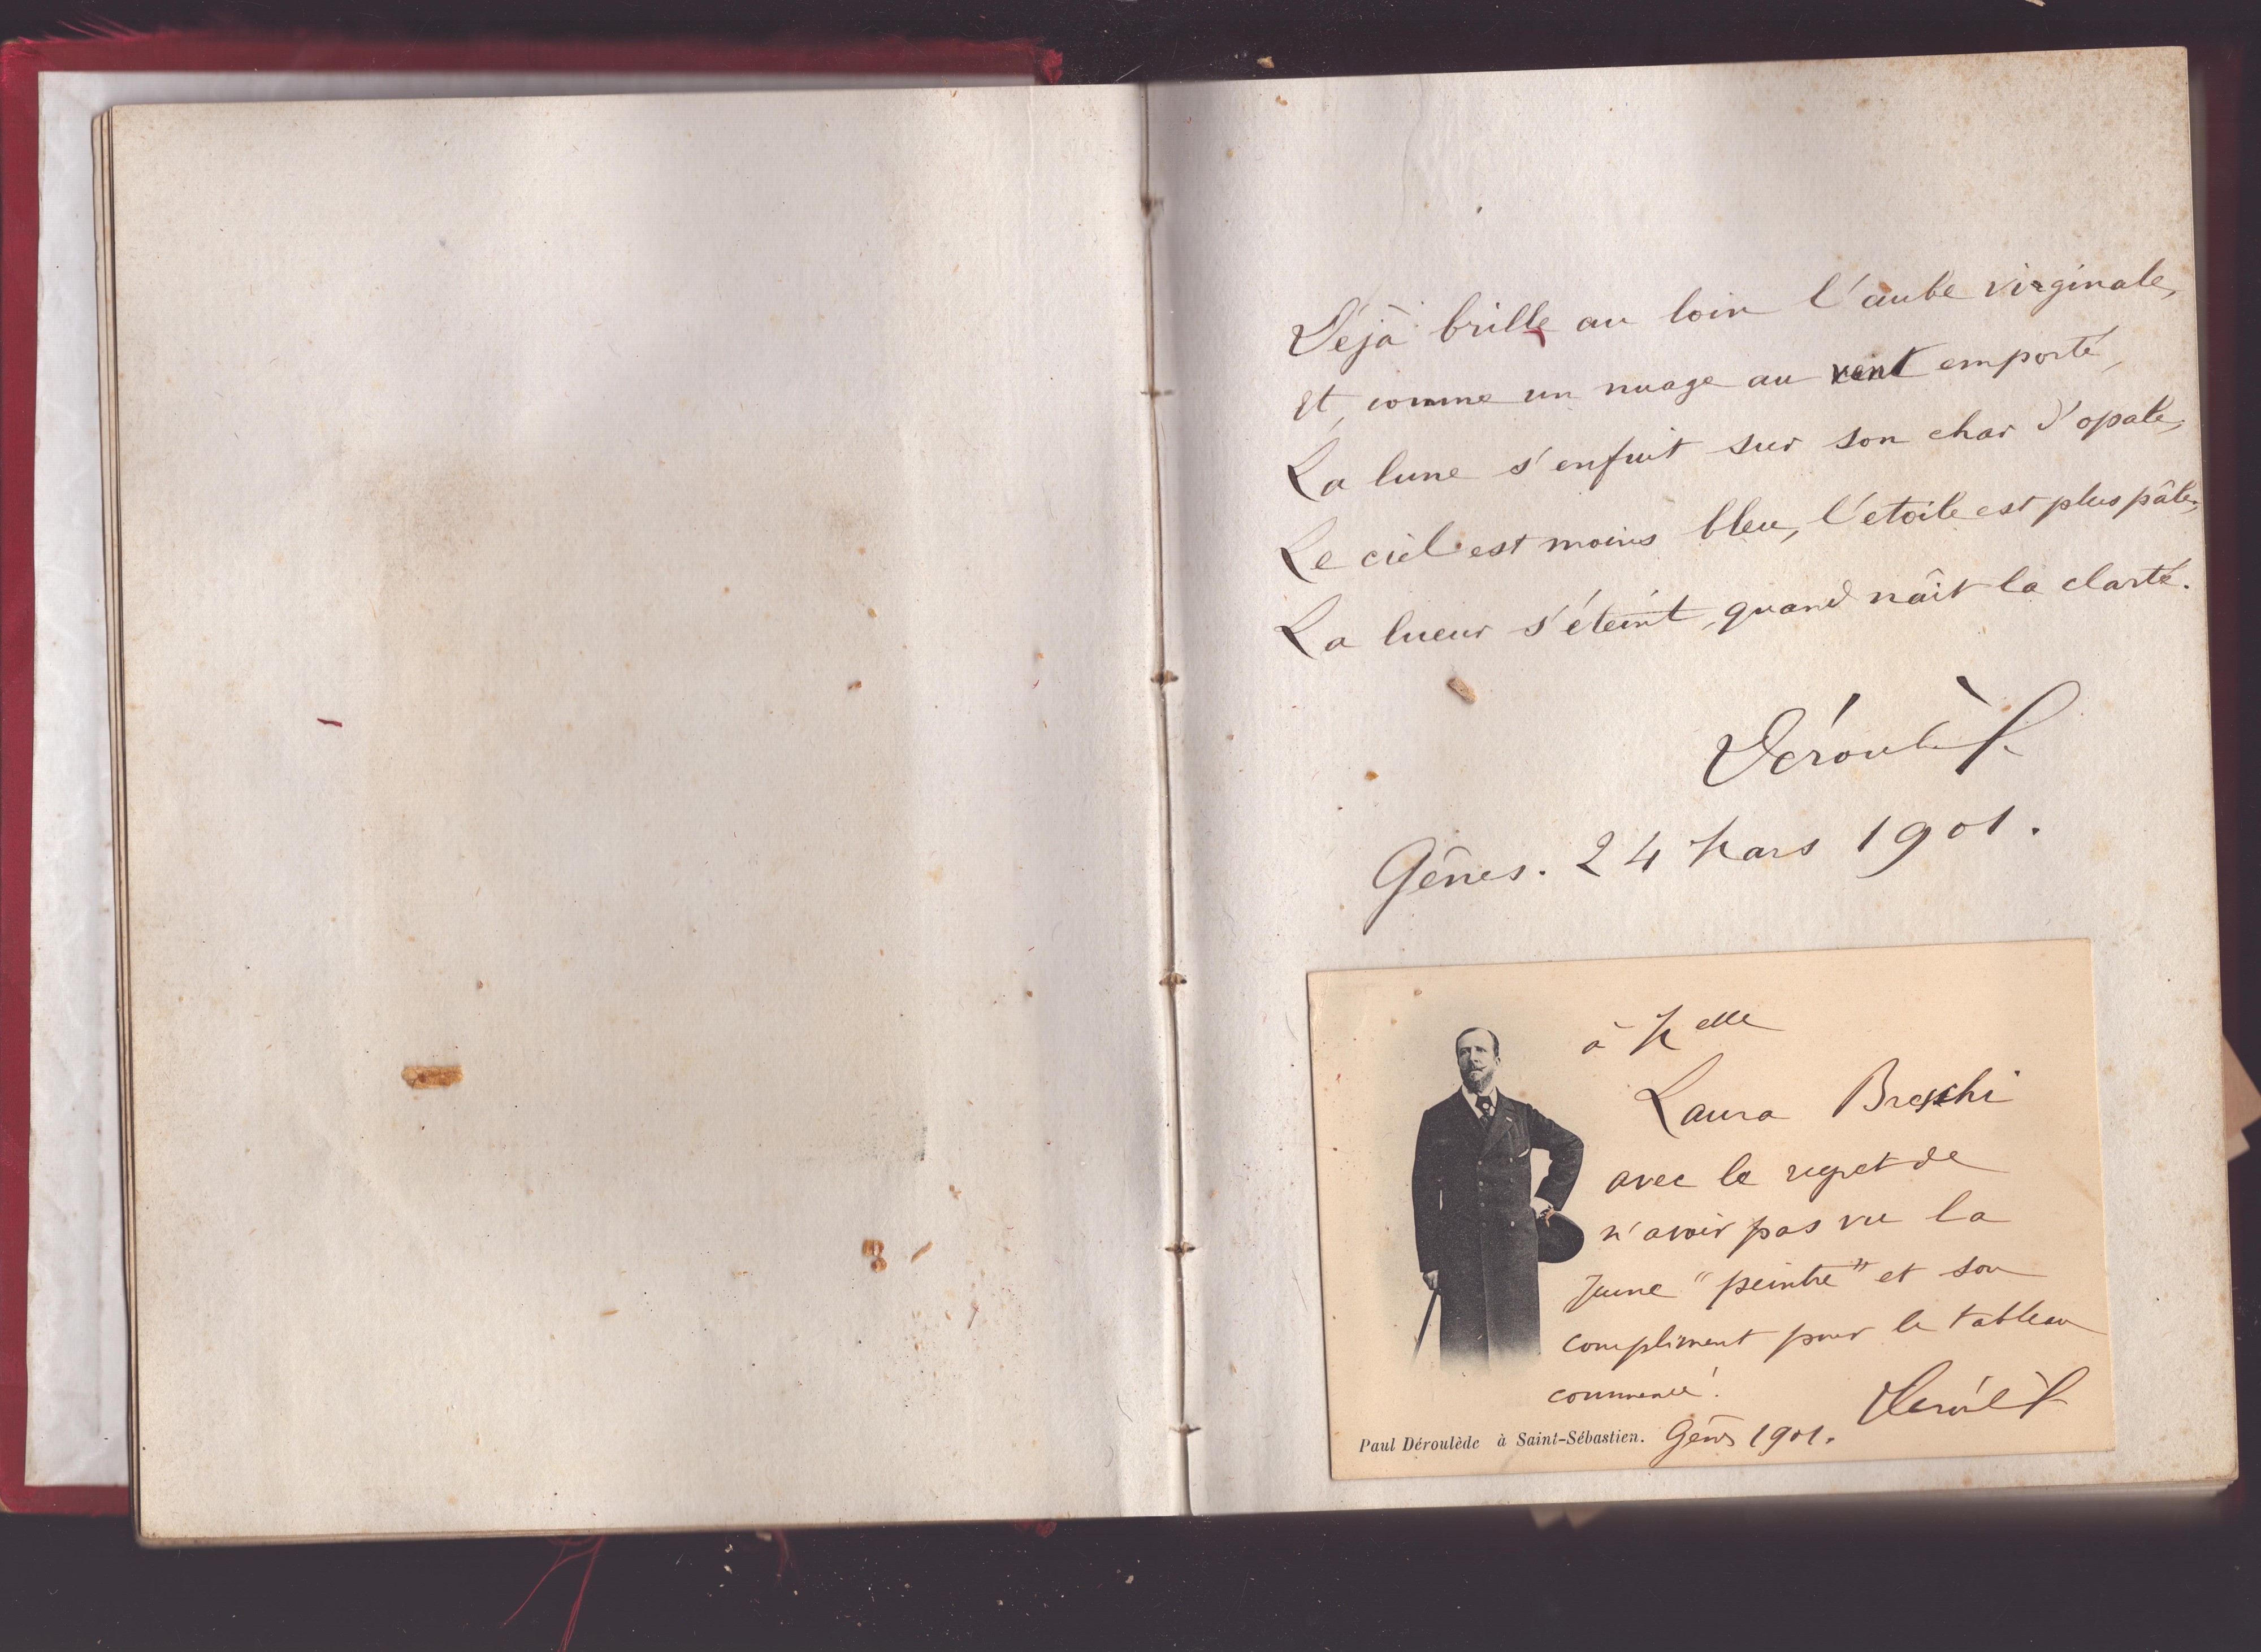 Déjà brille au loin l'aube virginale,
Et, comme un nuage au vent emporté,
La lune s'enfuit sur son char d'opale,
Le ciel est moins bleu, l'etoile est plus pâle,
La lueur s'éteint, quand nâit la clarté.
Déroulède
Gênes. 24 Mars 1901.
à Melle
Laura Breschi
avec le regret de
n'avoir pas vu la
Jeune "peintre" et son
compliment pour le tableau
commencé!
Déroulède
Paul Déroulède à Saint-Sébastien. Gênes 1901.